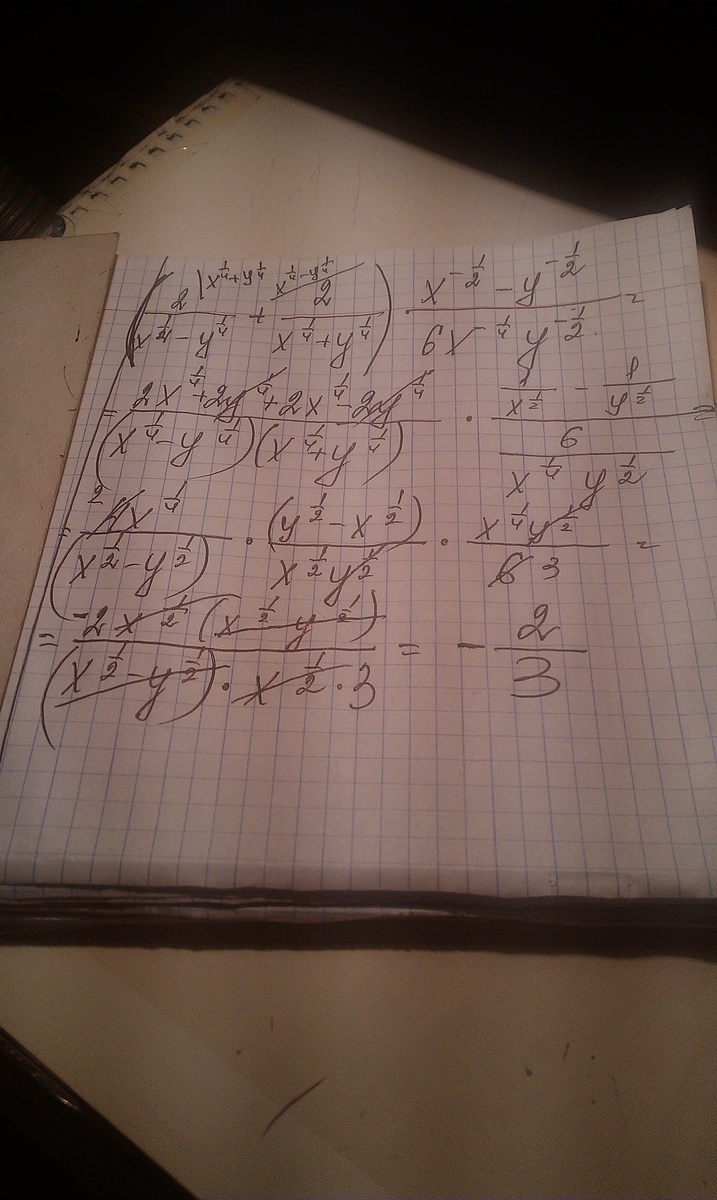 (2/(x^{1/4} - y^{1/4}) |x^{1/4}+y^{1/4} + 2/(x^{1/4} + y^{1/4}) x^{1/4}-y^{1/4}) · (x^{-1/2} - y^{-1/2})/(6x^{-1/4} y^{-1/2}) =
= (2x^{1/4} + 2y^{1/4} + 2x^{1/4} - 2y^{1/4})/((x^{1/4} - y^{1/4})(x^{1/4} + y^{1/4})) · (1/x^{1/2} - 1/y^{1/2})/(6/(x^{1/4} y^{1/2})) =
= 2 4x^{1/4}/(x^{1/2} - y^{1/2}) · (y^{1/2} - x^{1/2})/(x^{1/2} y^{1/2}) · (x^{1/4} y^{1/2})/(6 3) =
= (-2x^{1/2} (x^{1/2} - y^{1/2}))/((x^{1/2} - y^{1/2}) · x^{1/2} · 3) = - 2/3